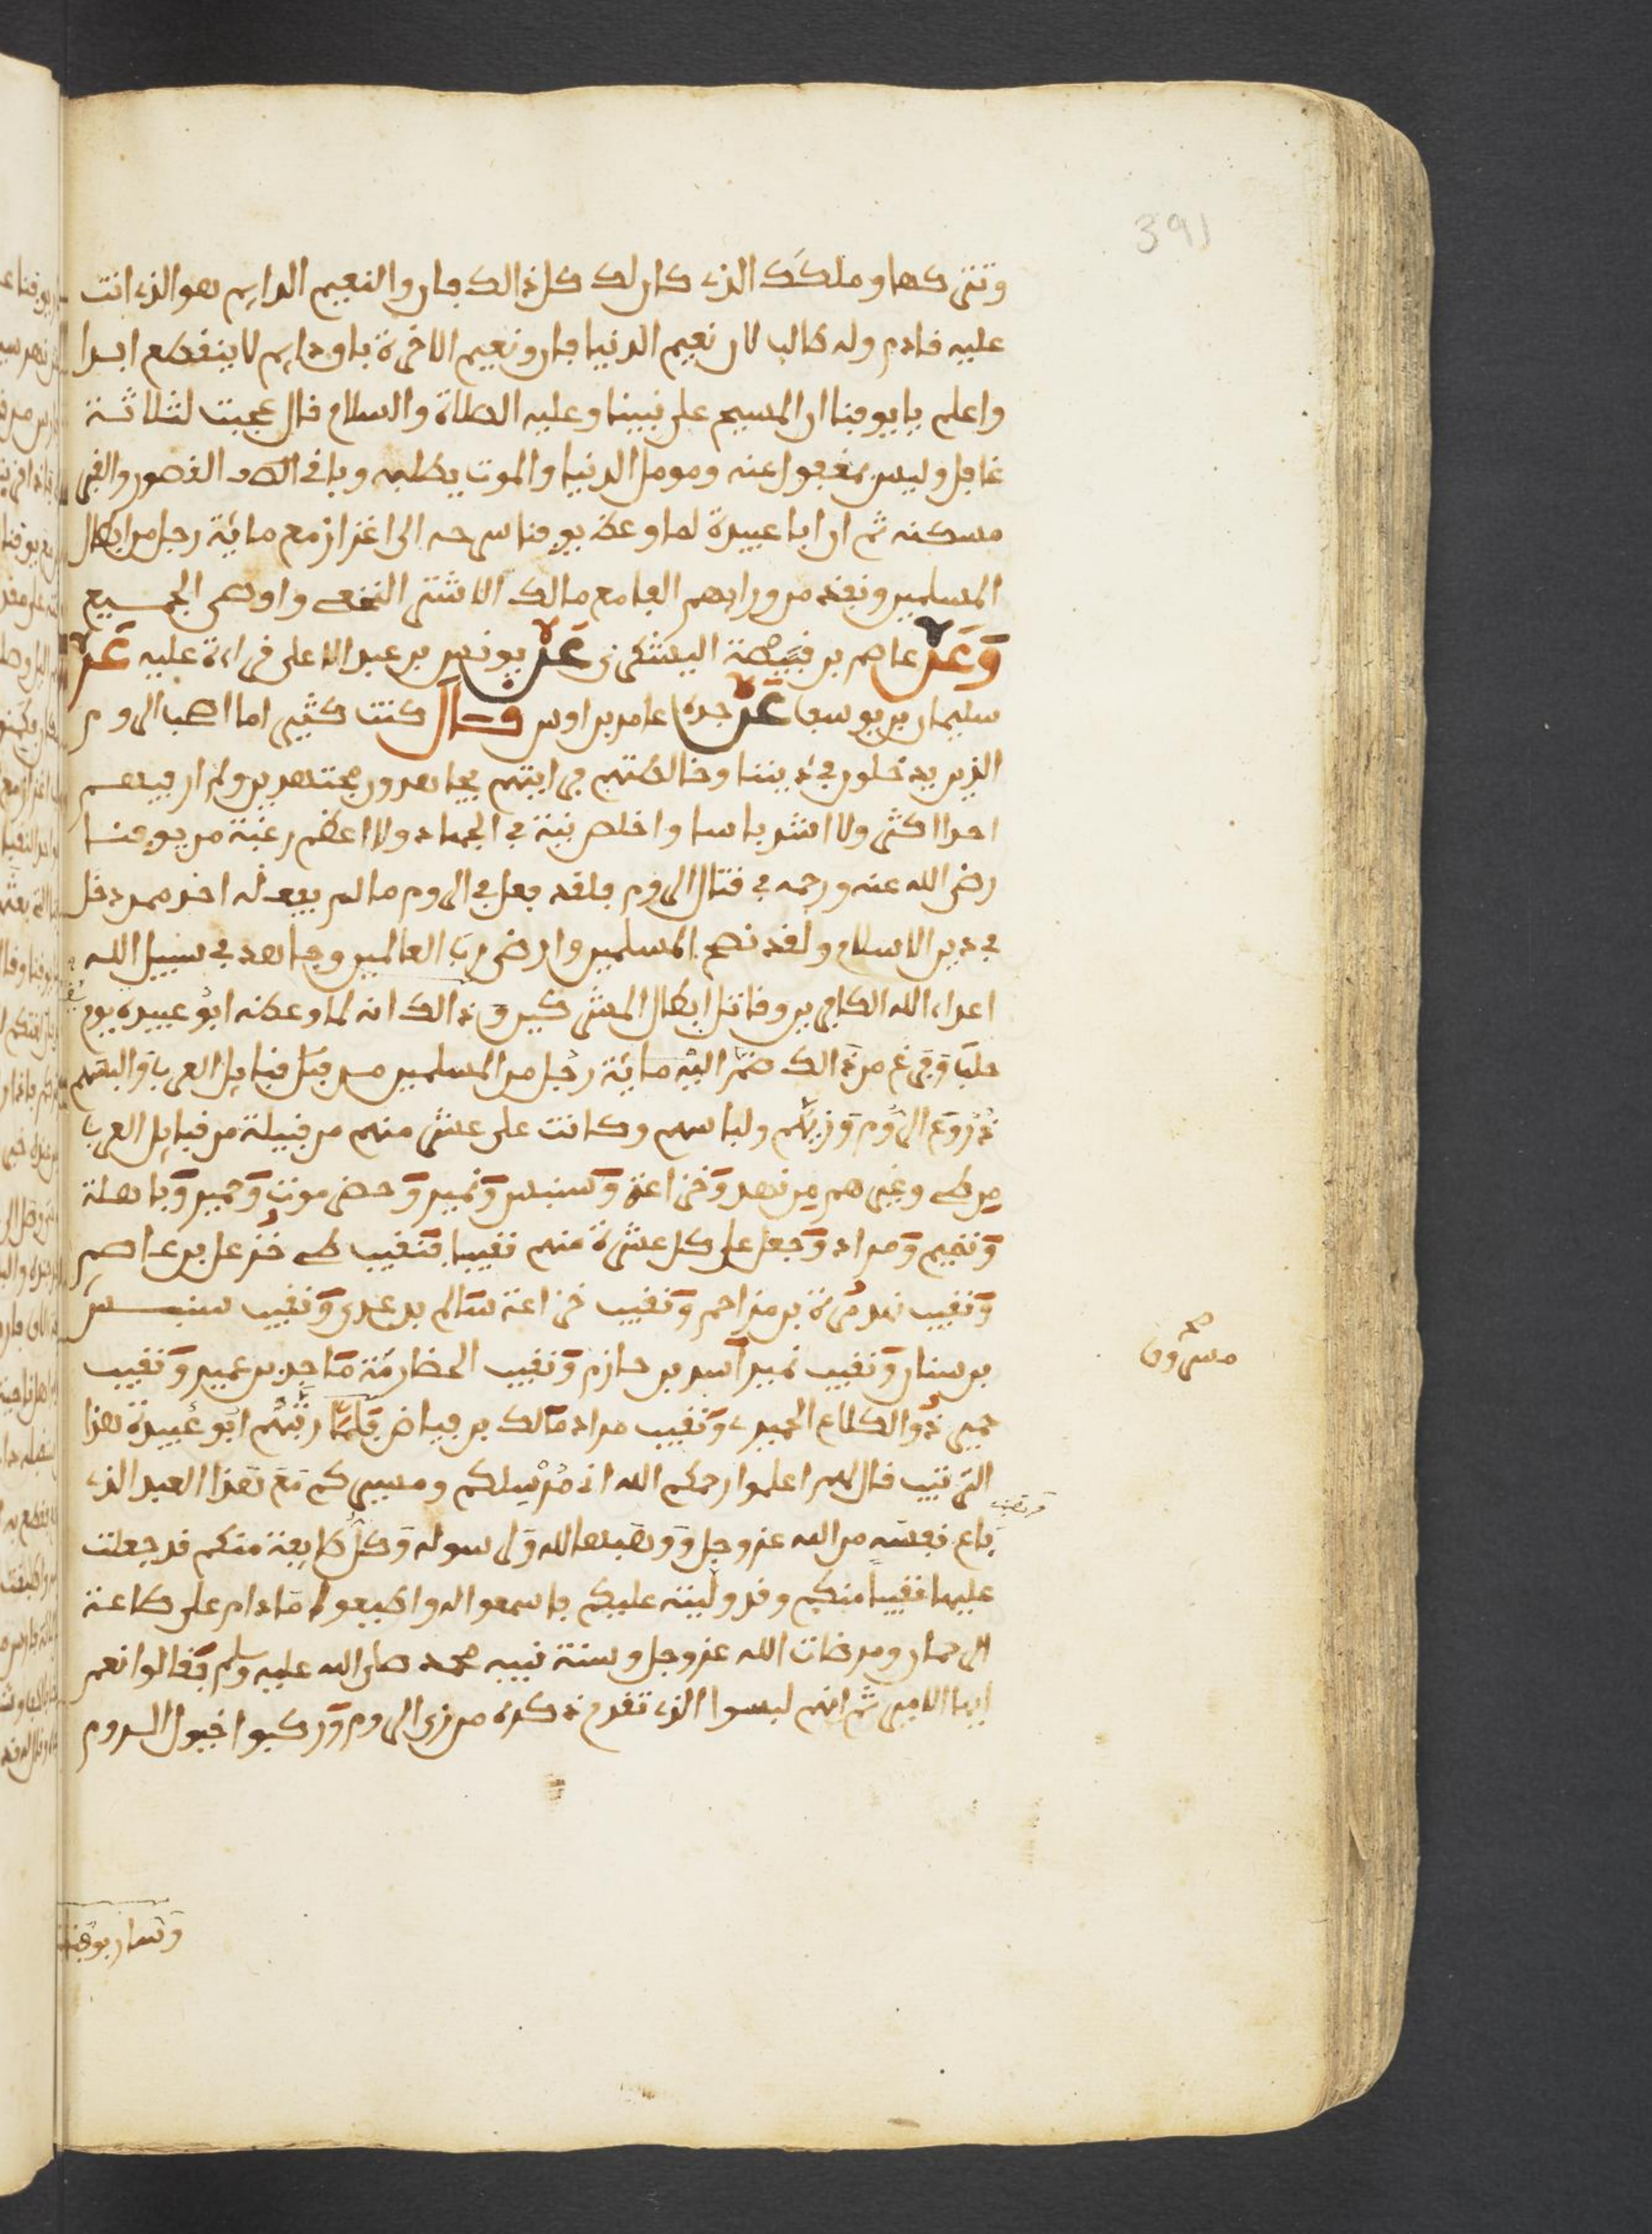 391
وتتركها وملكك الذي كان لك كل ذالك فان والنعيم الدايم هو الذي انت
عليه قادم وله طالب لان نعيم الدنيا فان ونعيم الاخرة باق دايم لا ينقطع ابدا
واعلم يا يوقنا ان المسيح على نبينا وعليه الصلاة والسلام قال عجبت لثلاثة
غافل وليس بمغفول عنه ومومل الدنيا والموت يطلبه وباني القصور والقبر
مسكنه ثم ان ابا عبيدة لما وعظ يوقنا سرحه الى اعزاز مع ماية رجل من ابطال
المسلمين ونفذ من ورايهم الفا مع مالك الاشتر النخعي واوصى الجميع
وعن عاصم بن قبيصة اليشكري عن يونس بن عبد الاعلى قراءة عليه عن
سليمان بن يوسف عن جده عامر بن اوس قال كنت كثيرا ما اصحب الروم
الذين يدخلون في ديننا وخالطتهم فرايتهم يجاهدون مجتهدين ولم ار فيهم
احدا اكثر ولا اشد باسا واخلص نية في الجهاد ولا اعظم رغبة من يوقنا
رضي الله عنه ورحمه في قتال الروم فلقد فعل في الروم ما لم يفعله احد ممن دخل
في دين الاسلام ولقد نصح المسلمين وارضى رب العالمين وجاهد في سبيل الله
اعداء الله الكافرين وقاتل ابطال المشركين وذالك انه لما وعظه ابو عبيدة يوم
حلب وفرغ من ذالك ضم اليه ماية رجل من المسلمين من قبل قبايل العرب والبسهم
دروع الروم وزيهم ولباسهم وكانت على عشر منهم من قبيلة من قبايل العرب
من طي وغيرهم من نهد وخزاعة وسنبس ونمير وحضرموت وحمير وباهلة
وتميم ومراد وجعل على كل عشرة منهم نقيبا فنقيب طي خزعل بن عاصم
ونقيب نهد مرة بن مزاحم ونقيب خزاعة سالم بن عدي ونقيب سنبس
مسروق
بن سنان ونقيب نمير اسد بن حازم ونقيب الحضارمة ماجد بن عمير ونقيب
حمير ذوا الكلاع الحميري ونقيب مراد مالك بن فياض فلما رتبهم ابو عبيدة هذا
الترتيب قال لهم اعلموا رحمكم الله اني مرسلكم ومسيركم مع هذا العبد الذي
باع نفسه من الله عز وجل ووهبها لله ولرسوله وكل طايفة منكم قد جعلت
عليها نقيبا منكم وقد وليته عليكم فاسمعوا له واطيعوا ما دام على طاعة
الرحمان ومرضات الله عز وجل وسنة نبيه محمد صلى الله عليه وسلم فقالوا نعم
ايها الامير ثم انهم لبسوا الذي تقدم ذكره من زي الروم وركبوا خيول الروم
وسار يوقنا